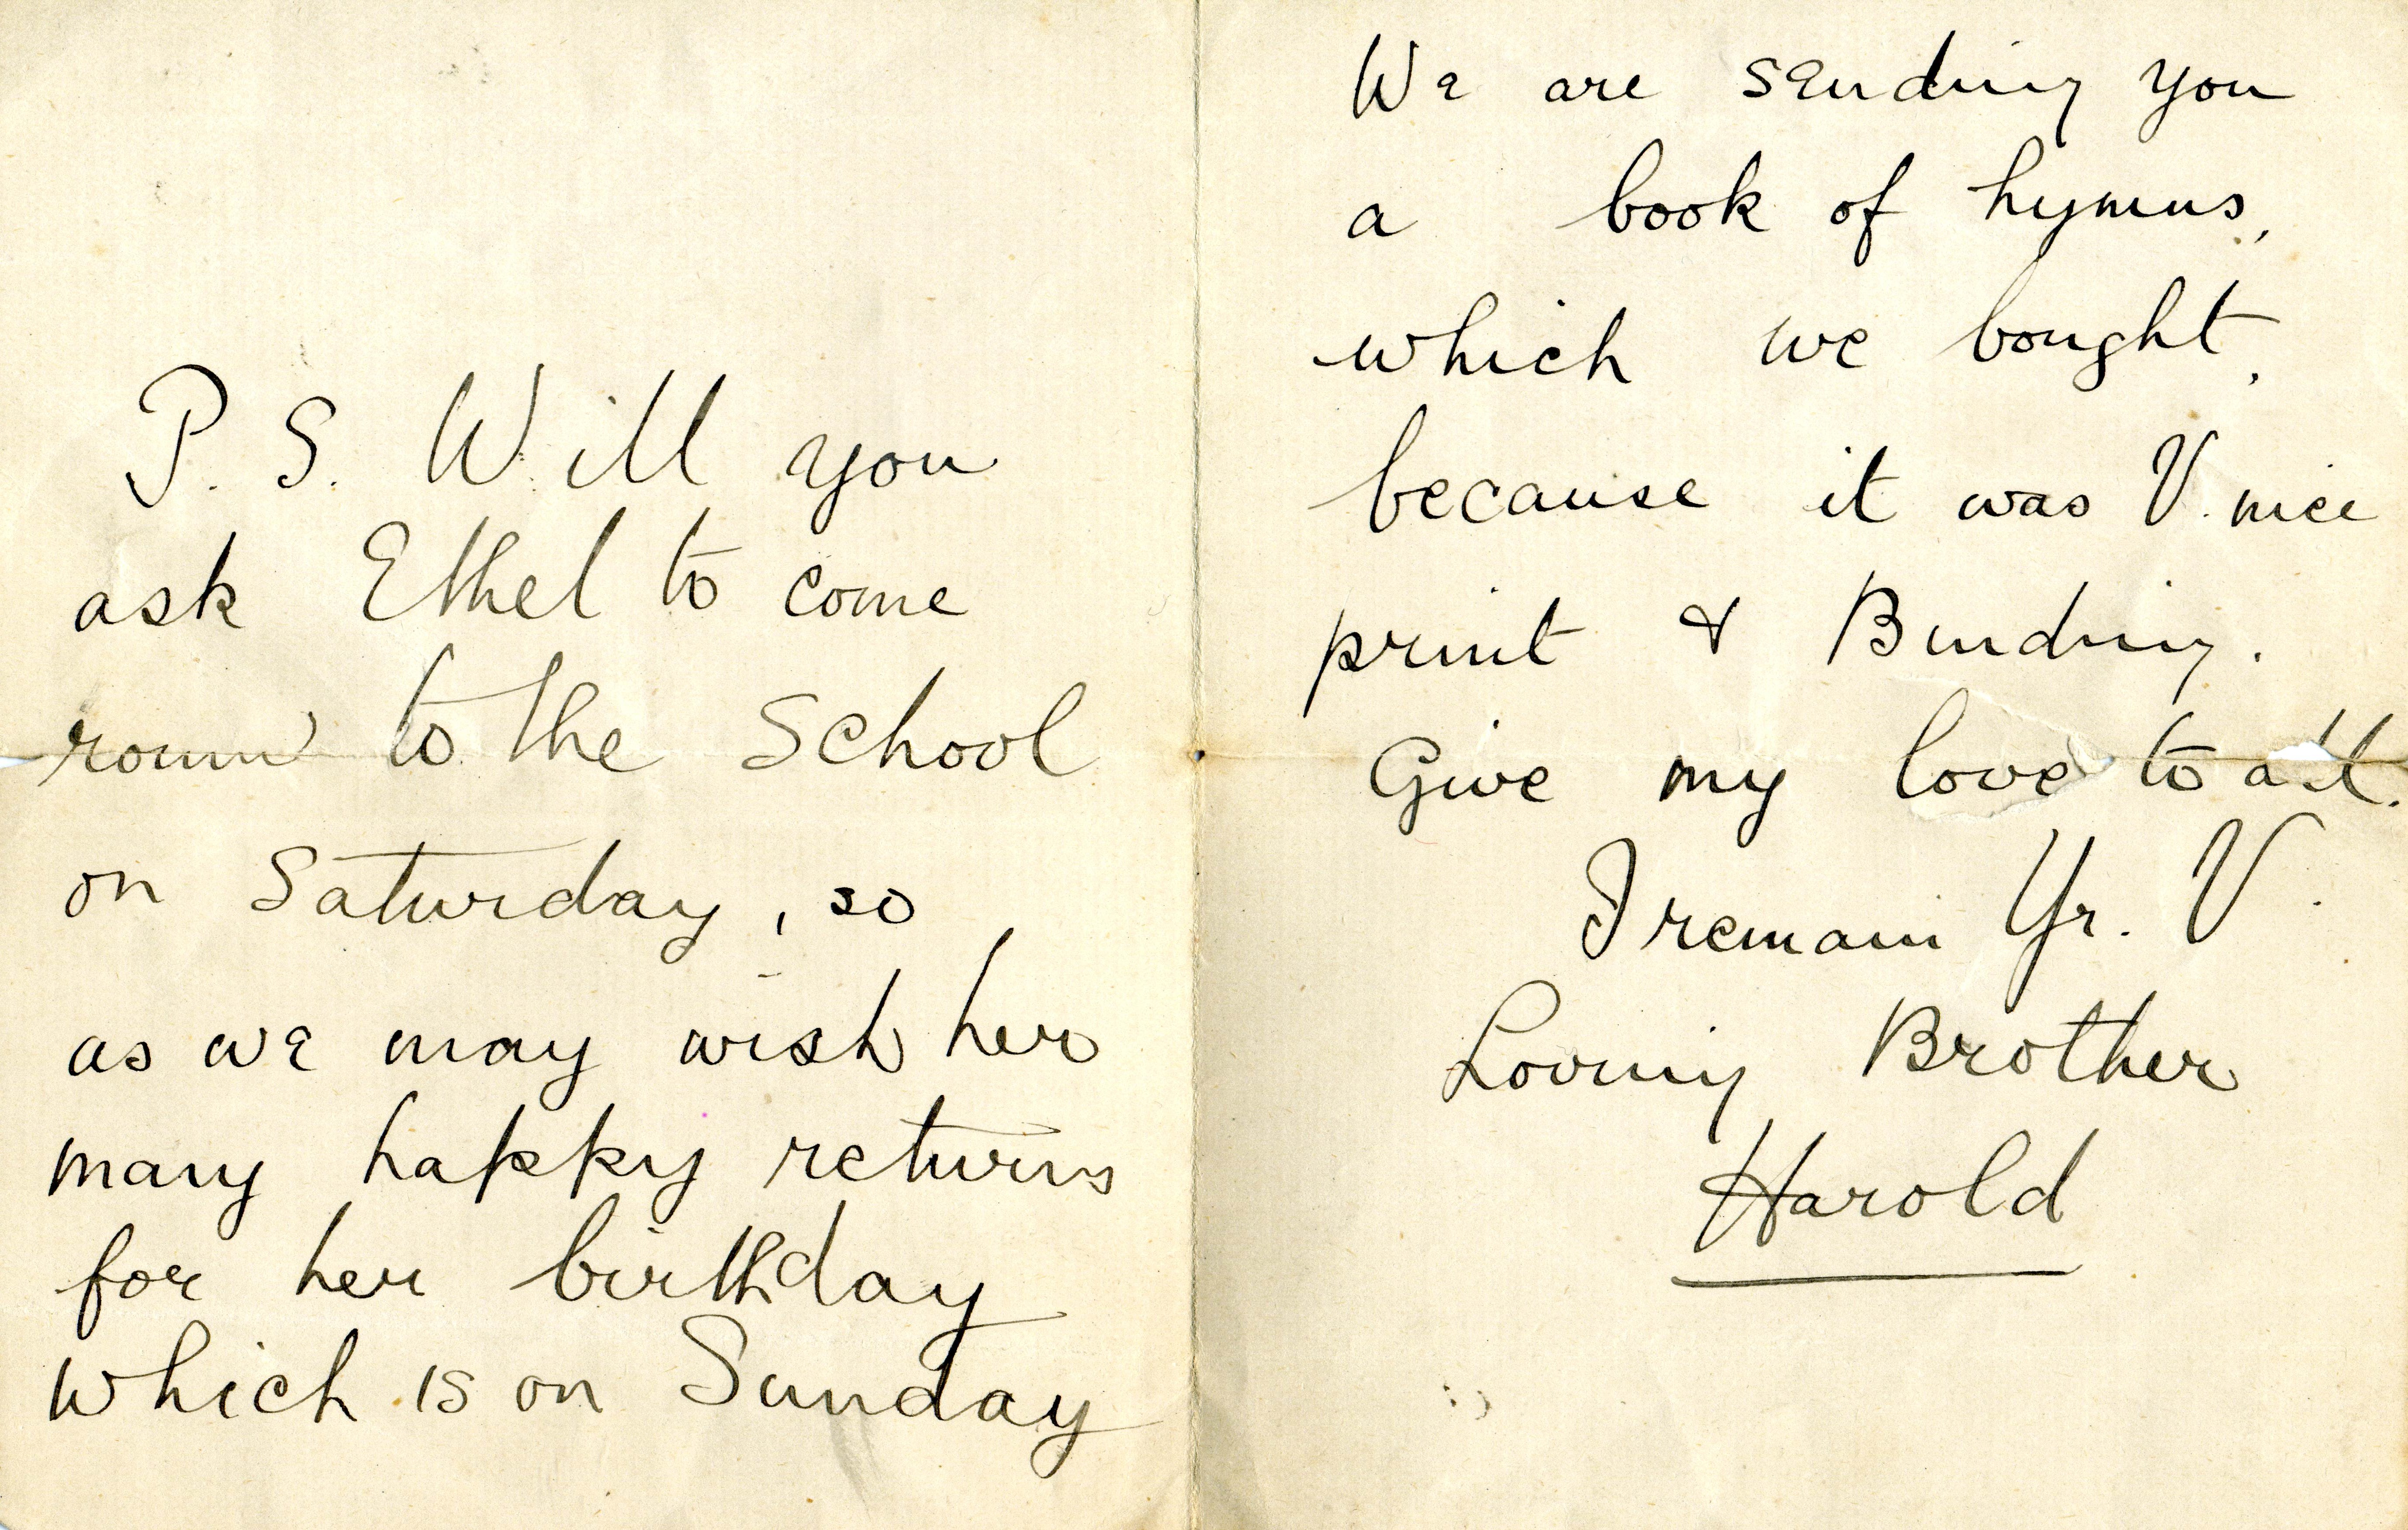 P. S. Will you
ask Ethel to come
round to the School
on Saturday, so
as we may wish her
many happy returns
for her birthday
which is on Sunday
We are sending you
a book of hymns,
which we bought,
because it was V. nice
print & Binding.
Give my love to all.
I remain Yr. V.
Loving Brother
Harold